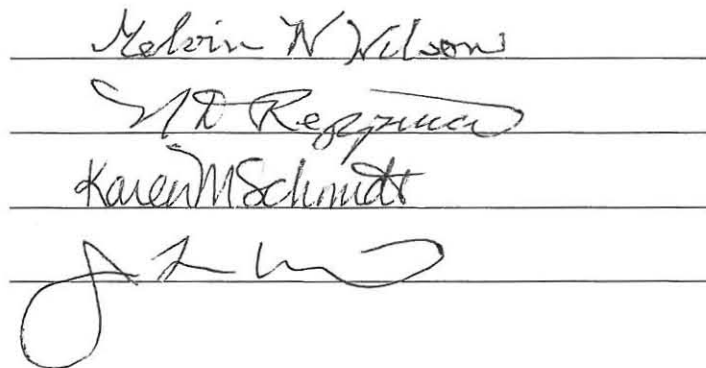 Melvin N Wilson
N D Reppucci
Karen M Schmidt